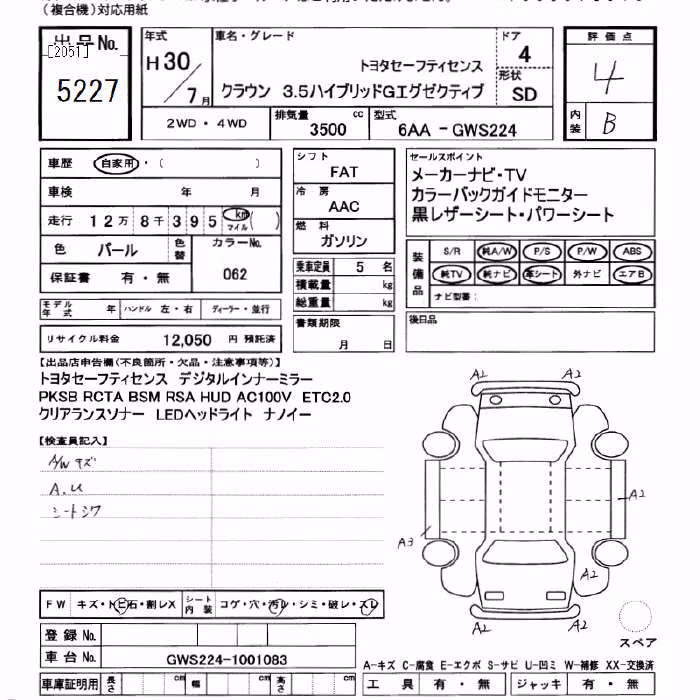 (複合機)対応用紙
出品No.
[2051]
5227
年式
H30/7月
車名・グレード
トヨタセーフティセンス
クラウン 3.5ハイブリッドGエグゼクティブ
ドア
4
形状
SD
評価点
4
内装
B
2WD・4WD
排気量
3500 cc
型式
6AA-GWS224
車歴 自家用・( )
車検 年 月
走行 12万8千395 km マイル( )
色 パール
色替
カラーNo.
062
保証書 有・無
シフト
FAT
冷房
AAC
燃料
ガソリン
乗車定員 5 名
積載量 kg
総重量 kg
セールスポイント
メーカーナビ・TV
カラーバックガイドモニター
黒レザーシート・パワーシート
装備品
S/R 純A/W P/S P/W ABS
純TV 純ナビ 革シート 外ナビ エアB
ナビ型番:
モデル年式 年 ハンドル 左・右 ディーラー・並行
リサイクル料金 12,050 円 預託済
書類期限
月 日
後日品
【出品店申告欄(不良箇所・欠品・注意事項等)】
トヨタセーフティセンス デジタルインナーミラー
PKSB RCTA BSM RSA HUD AC100V ETC2.0
クリアランスソナー LEDヘッドライト ナノイー
【検査員記入】
A/W キズ
A.U
シートシワ
A2 A2
A2
A3
A2
A2 A2
スペア
FW キズ・トビ石・割レX
シート内装 コゲ・穴・汚レ・シミ・破レ・スレ
登録No.
車台No. GWS224-1001083
車庫証明用 長さ cm 幅 cm 高さ cm
A-キズ C-腐食 E-エクボ S-サビ U-凹ミ W-補修 XX-交換済
工具 有・無 ジャッキ 有・無